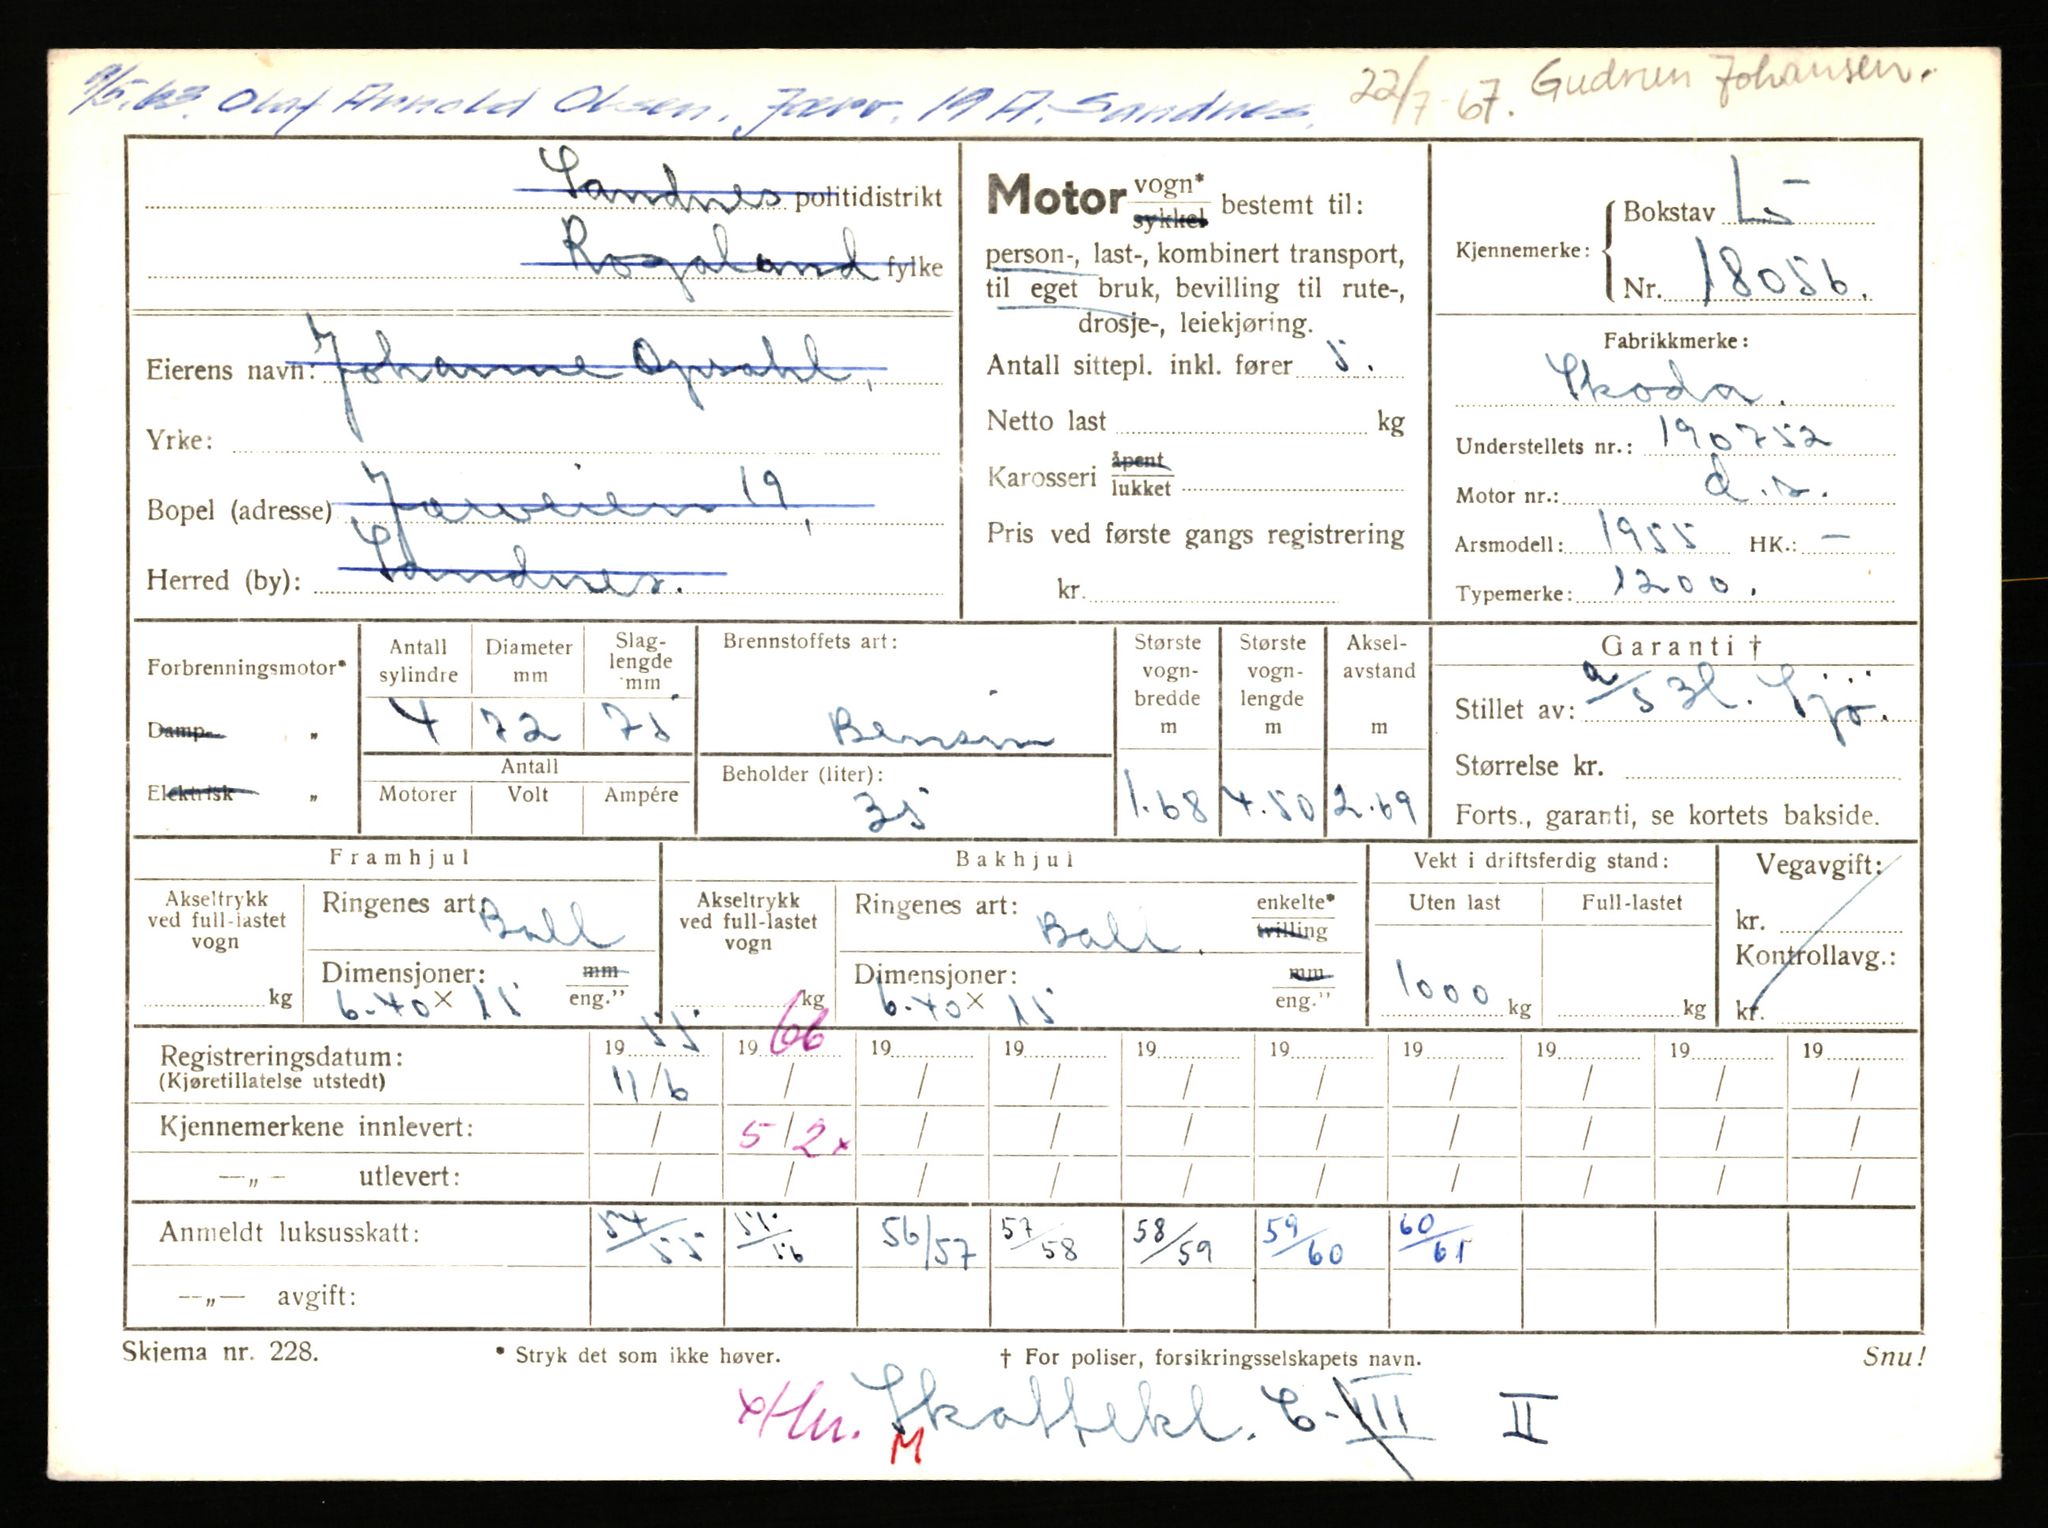 9/5.63. Olaf Arnold Olsen. Jærv. 19 A. Sandnes. 22/7-67. Gudrun Johansen.
Sandnes politidistrikt
Rogaland fylke
Eierens navn: Johanne Opsahl.
Yrke:
Bopel (adresse) Jærveien 19,
Herred (by): Sandnes.
Motor vogn* sykkel bestemt til:
person-, last-, kombinert transport,
til eget bruk, bevilling til rute-,
drosje-, leiekjøring.
Antall sittepl. inkl. fører 5.
Netto last kg
Karosseri åpent lukket
Pris ved første gangs registrering
kr.
Kjennemerke: Bokstav L-
Nr. 18056.
Fabrikkmerke:
Skoda.
Understellets nr.: 190752
Motor nr.: d.s.
Arsmodell: 1955 HK.: —
Typemerke: 1200.
Forbrenningsmotor*
Damp- „
Elektrisk „
Antall sylindre Diameter mm Slag-lengde mm
4 72 75
Antall
Motorer Volt Ampére
Brennstoffets art:
Bensin
Beholder (liter):
35
Største vogn-bredde m
1.68
Største vogn-lengde m
4.50
Aksel-avstand m
2.69
Garanti †
Stillet av: a/s Sjø.
Størrelse kr.
Forts., garanti, se kortets bakside.
Framhjul
Akseltrykk ved full-lastet vogn
kg
Ringenes art: Ball
Dimensjoner: mm eng."
6.40 x 15
Bakhjul
Akseltrykk ved full-lastet vogn
kg
Ringenes art: Ball. enkelte* tvilling
Dimensjoner: mm eng."
6.40 x 15
Vekt i driftsferdig stand:
Uten last Full-lastet
1000 kg kg
Vegavgift:
kr.
Kontrollavg.:
kr.
Registreringsdatum: 19 55 19 66 19 19 19 19 19 19 19 19
(Kjøretillatelse utstedt) 11/6 / / / / / / / / /
Kjennemerkene innlevert: / 5/2x / / / / / / / /
—„— utlevert: / / / / / / / / / /
Anmeldt luksusskatt: 54/55 55/56 56/57 57/58 58/59 59/60 60/61
—„— avgift:
Skjema nr. 228. * Stryk det som ikke høver. † For poliser, forsikringsselskapets navn. Snu!
Skattekl. C-VII II
M